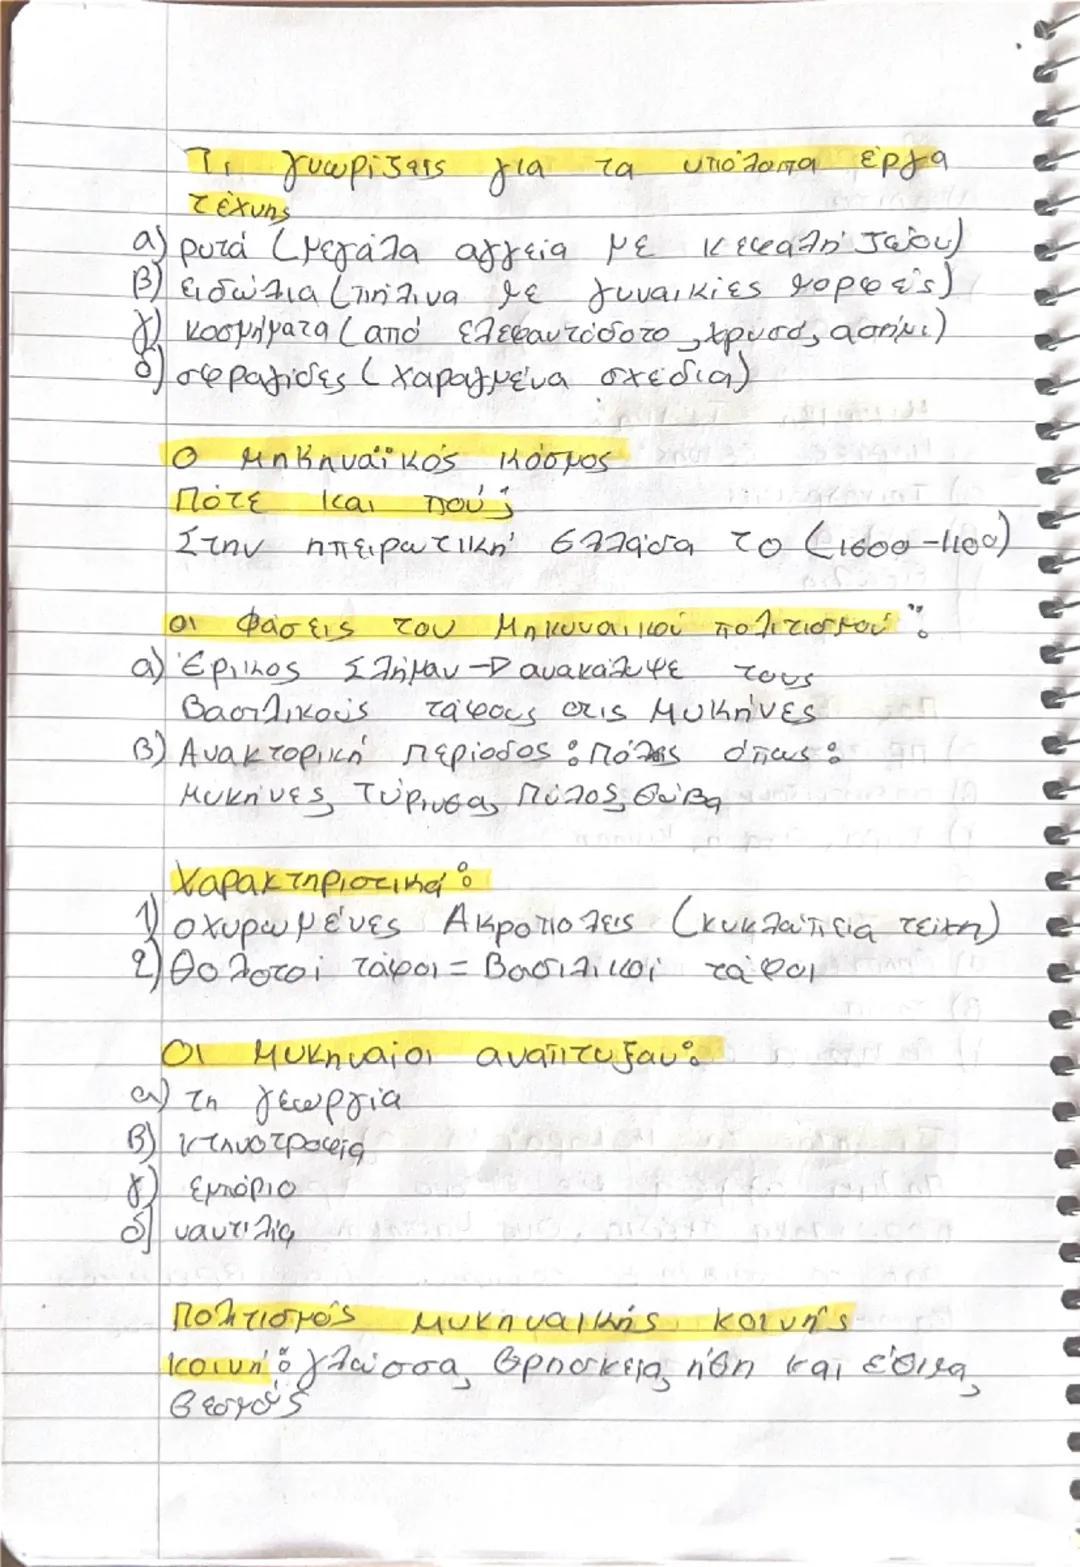 Τι γνωρίζεις για τα υπόλοιπα έργα
τέχνης
α) ρυτά (μεγάλα αγγεία με κεφαλή ζώου)
β) ειδώλια (πήλινα με γυναικίες μορφές)
γ) κοσμήματα (από ελεφαντόδοτο, χρυσό, ασήμι)
δ) σφραγίδες (χαραγμένα σχέδια)
Ο Μηκηναϊκός κόσμος
Πότε και πού;
Στην ηπειρωτική Ελλάδα το (1600-1100)
Οι Φάσεις του Μηκυναικού πολιτισμού:
α) Έρικος Σλήμαν → ανακάλυψε τους
Βασιλικούς τάφους στις Μυκήνες
β) Ανακτορική περίοδος: Πόλεις όπως:
Μυκήνες, Τύρινθα, Πύλος, Θύβα
Χαρακτηριστικά:
1) οχυρωμένες Ακροπόλεις (κυκλώπεια τείχη)
2) Θολοτοί τάφοι = Βασιλικοί τάφοι
Οι Μυκηναίοι αναπτυξαν:
α) τη γεωργία
β) κτηνοτροφία
γ) εμπόριο
δ) ναυτιλία
Πολιτισμός μυκηναικής κοινής
κοινή: γλώσσα, θρησκεία, ήθη και έθιμα,
θεσμούς